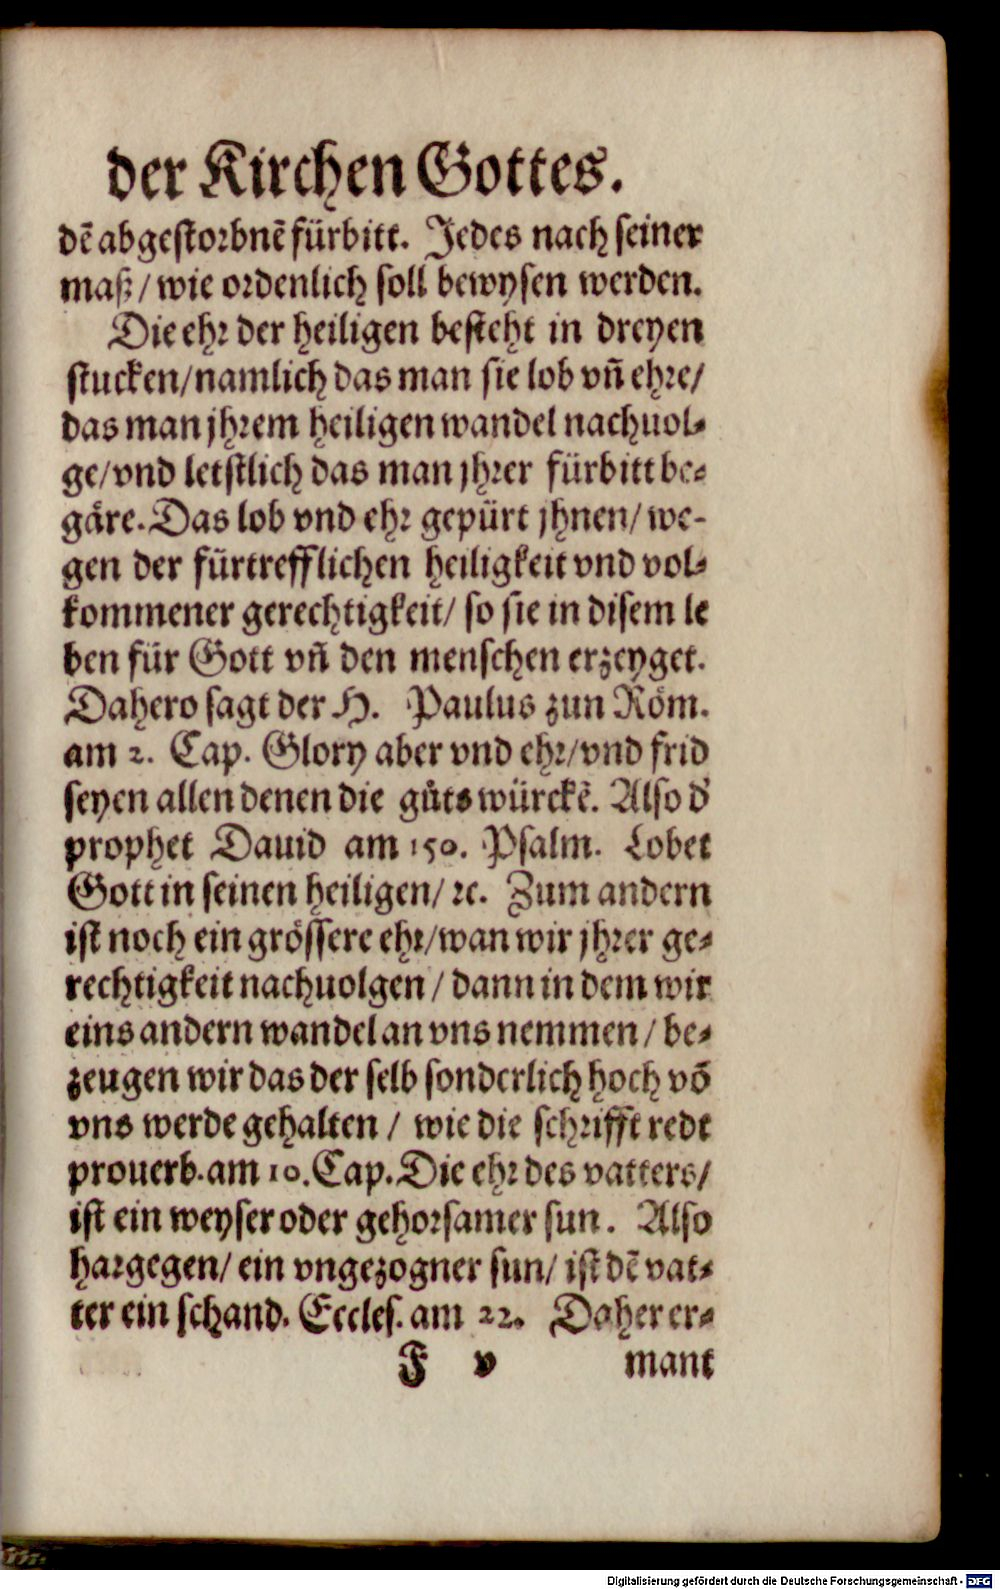 der Kirchen Gottes.
dẽ abgestorbnẽ fürbitt. Jedes nach seiner
maß / wie ordenlich soll bewysen werden.
Die ehr der heiligen besteht in dreyen
stucken/namlich das man sie lob vñ ehre/
das man jhrem heiligen wandel nachuol-
ge/vnd letstlich das man jhrer fürbitt be-
gäre. Das lob vnd ehr gepürt jhnen/ we-
gen der fürtrefflichen heiligkeit vnd vol-
kommener gerechtigkeit/ so sie in disem le
ben für Gott vñ den menschen erzeyget.
Dahero sagt der H. Paulus zun Röm.
am 2. Cap. Glory aber vnd ehr/vnd frid
seyen allen denen die gůts würckẽ. Also d'
prophet Dauid am 150. Psalm. Lobet
Gott in seinen heiligen/ ꝛc. Zum andern
ist noch ein grössere ehr/wan wir jhrer ge-
rechtigkeit nachuolgen / dann in dem wir
eins andern wandel an vns nemmen / be-
zeugen wir das der selb sonderlich hoch võ
vns werde gehalten / wie die schrifft redt
prouerb. am 10. Cap. Die ehr des vatters/
ist ein weyser oder gehorsamer sun. Also
hargegen/ ein vngezogner sun/ ist dẽ vat-
ter ein schand. Eccles. am 22. Daher er-
F v mant
Digitalisierung gefördert durch die Deutsche Forschungsgemeinschaft - DFG